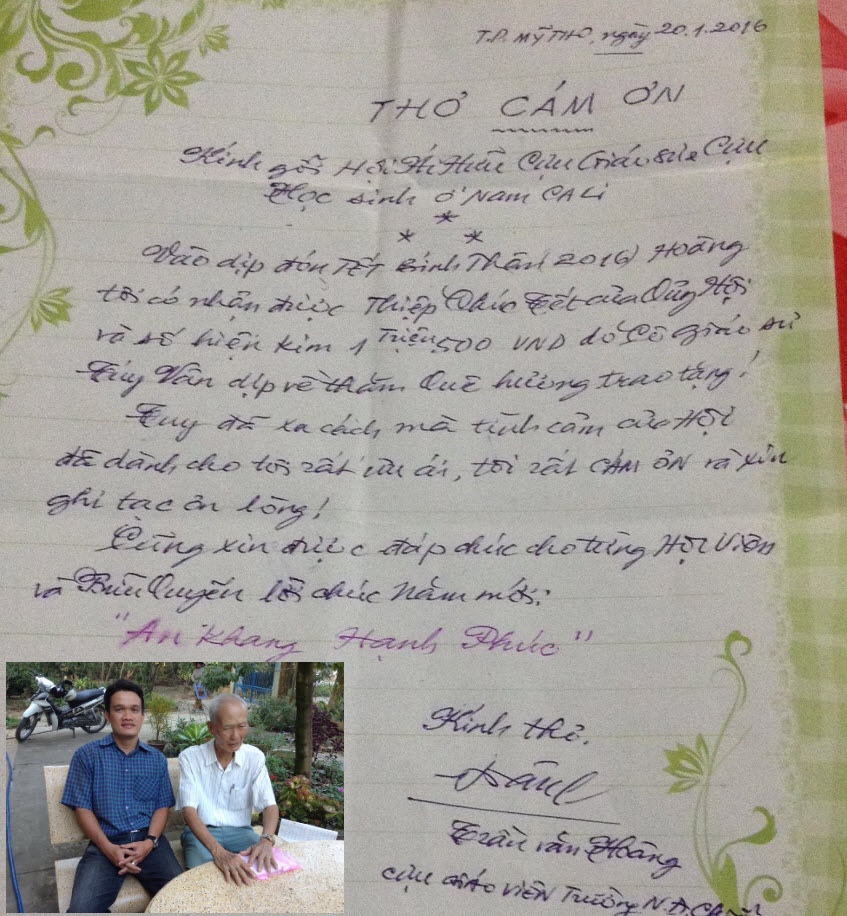 T.P. MỸ THO, ngày 20.1.2016
THƠ CÁM ƠN
Kính gởi Hội Ái Hữu Cựu Giáo sư Cựu
Học sinh ở Nam CALI
* * *
Vào dịp đón TẾT Bính Thân (2016) Hoàng
tôi có nhận được Thiệp Chúc Tết của Qũy Hội
và số hiện kim 1 Triệu, 500 VND do Cô Giáo sư
Túy Vân dịp về thăm Quê hương trao tặng!
Tuy đã xa cách mà tình cảm của Hội
đã dành cho tôi rất ưu ái, tôi rất CÁM ƠN và xin
ghi tạc ân lòng!
Cũng xin được đáp chúc cho từng Hội Viên
và Bửu Quyến lời chúc Năm mới:
"An Khang Hạnh Phúc"
Kính thơ.
Trần văn Hoàng
cựu Giáo viên Trường N.Đ.C